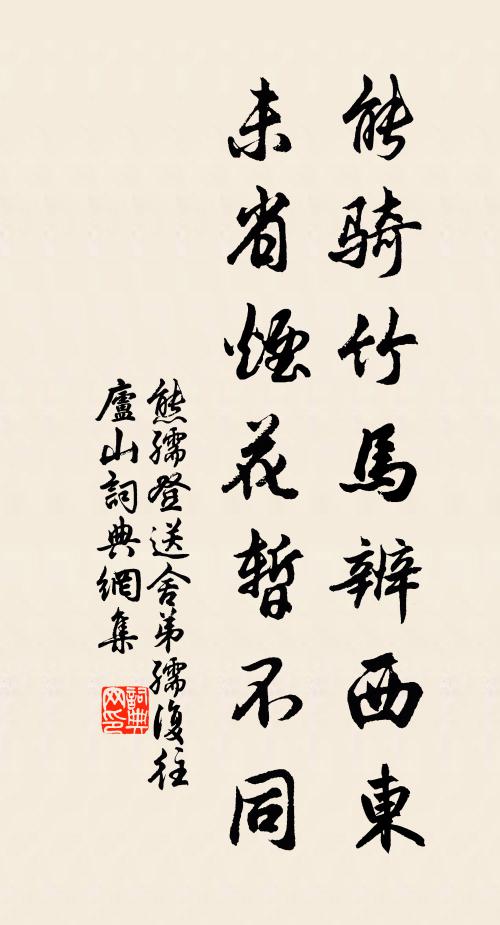 能騎竹馬辨西東
未省煙花暫不同
熊孺登送舍弟孺復往
廬山詞典網集
詞典網印